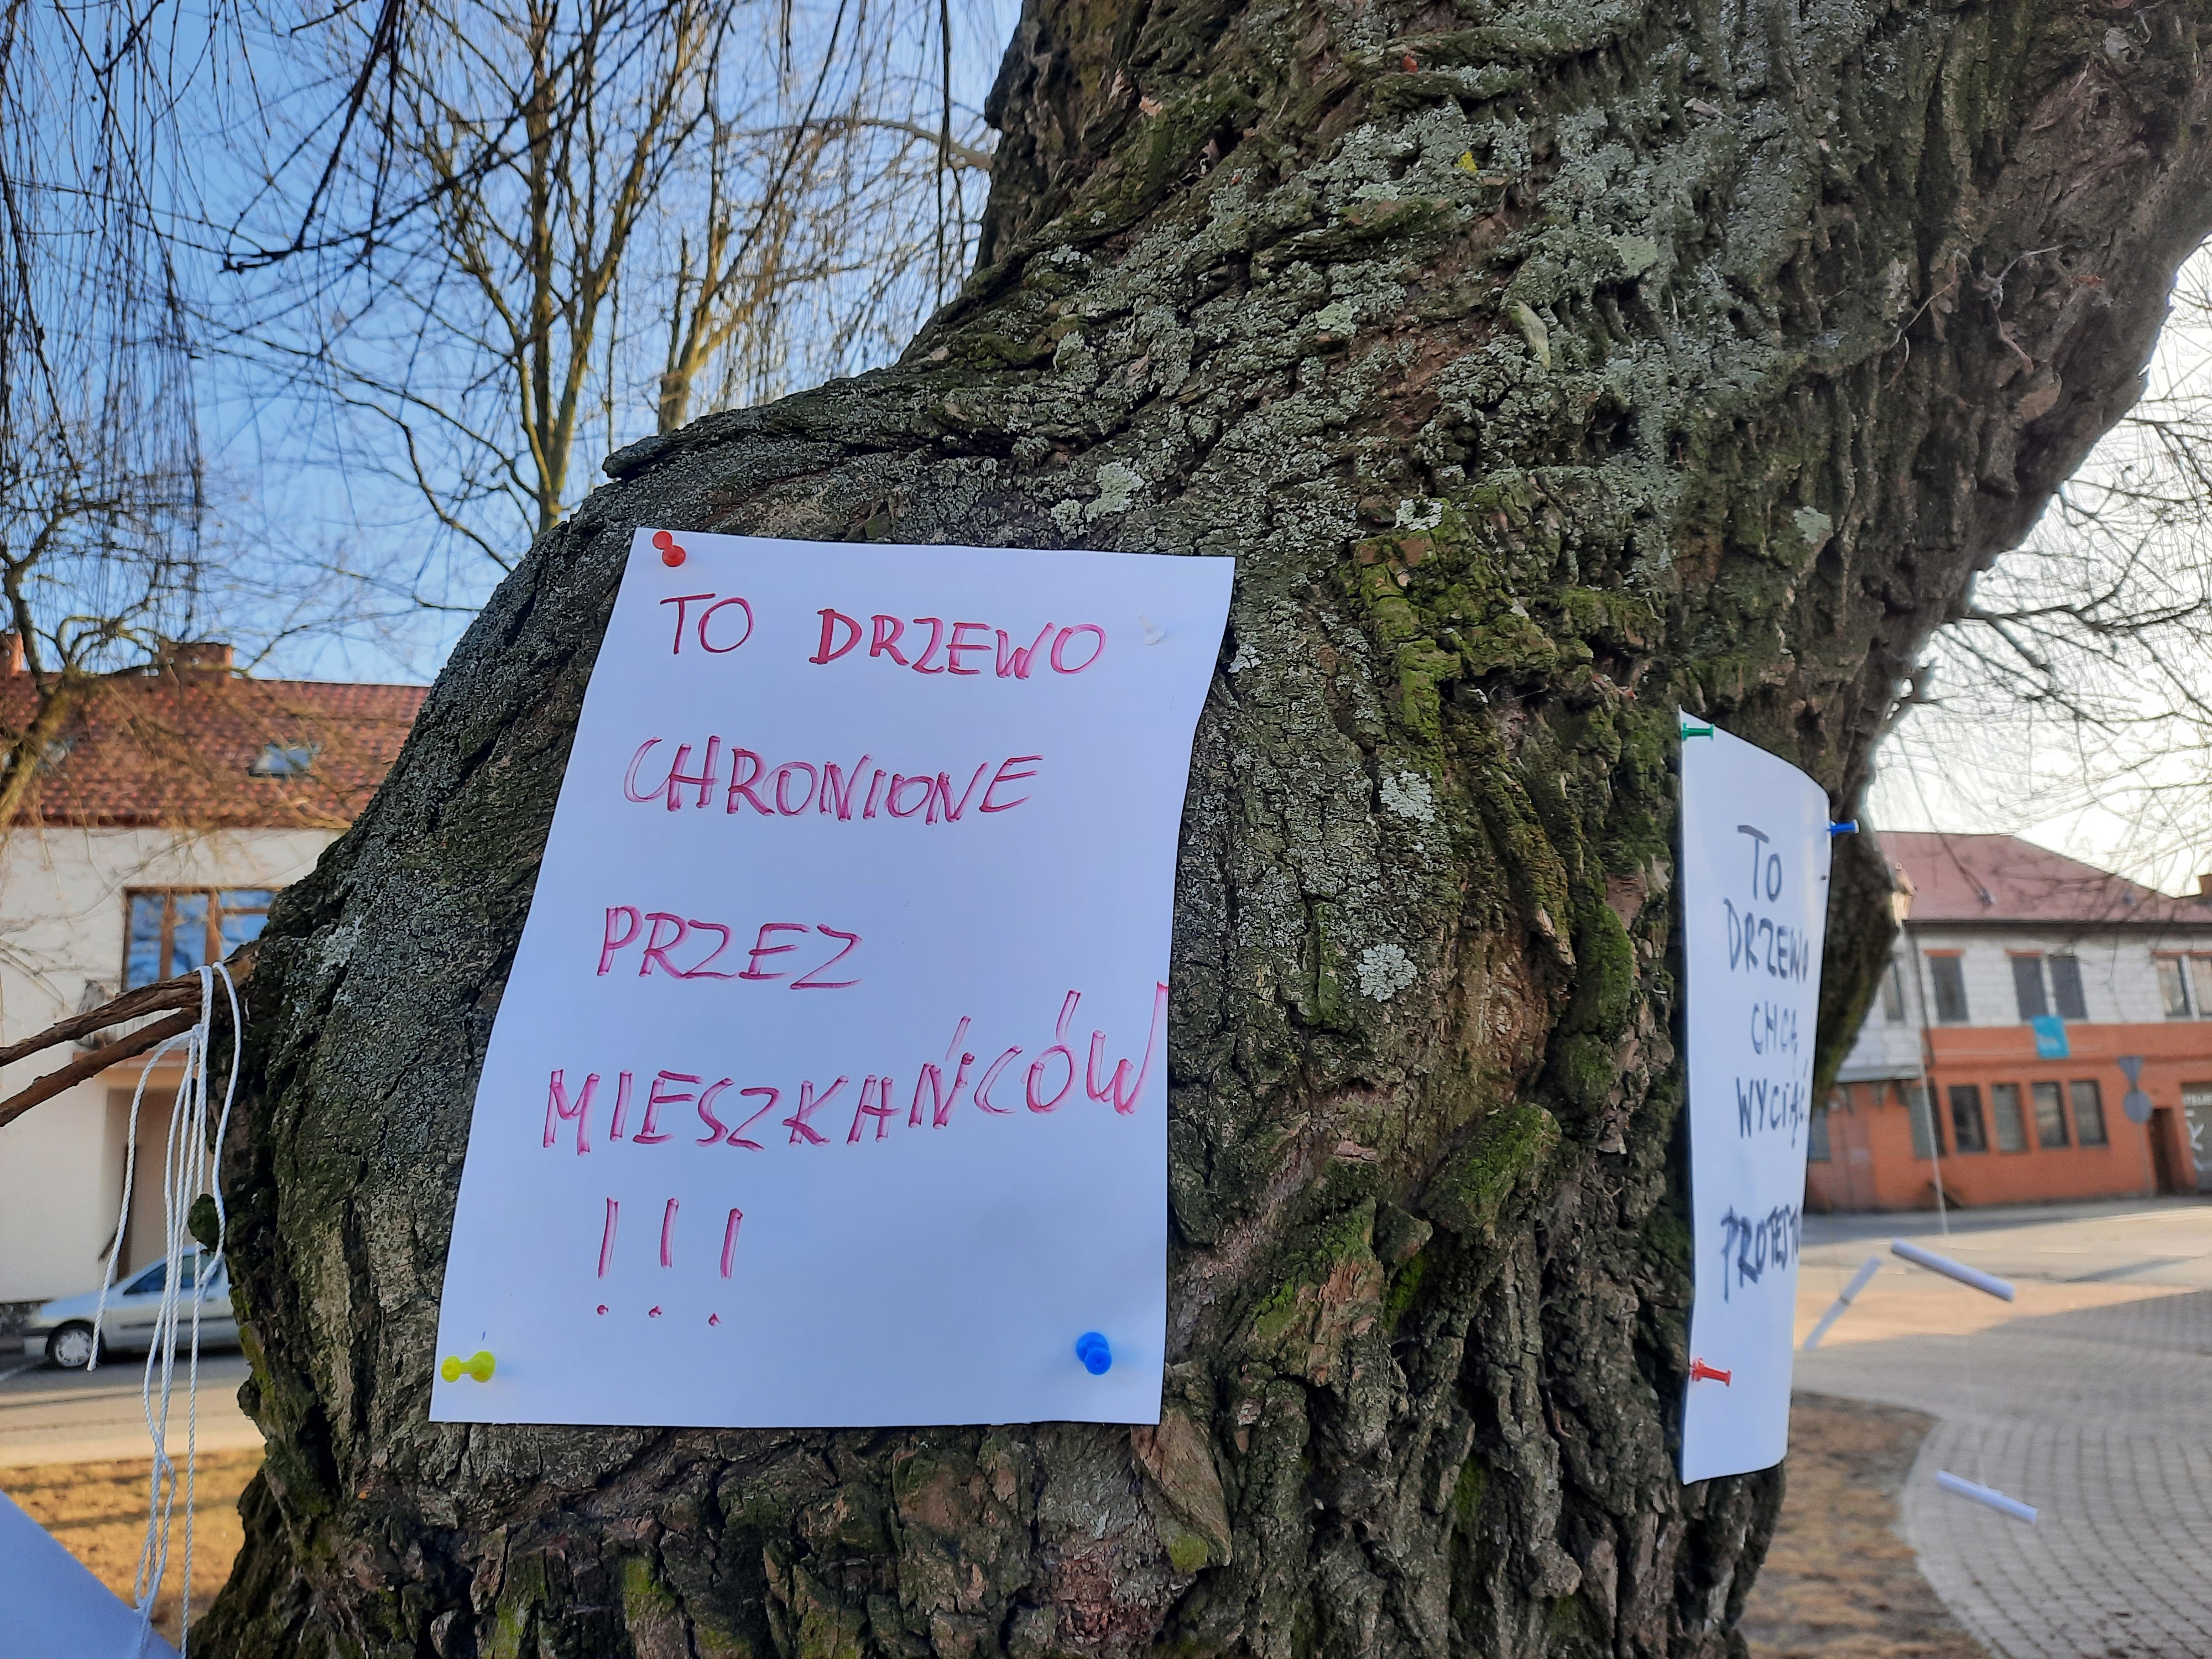 TO DRZEWO
CHRONIONE
PRZEZ
MIESZKAŃCÓW
!!!
TO
DRZEWO
CHCĄ
WYCIĄĆ